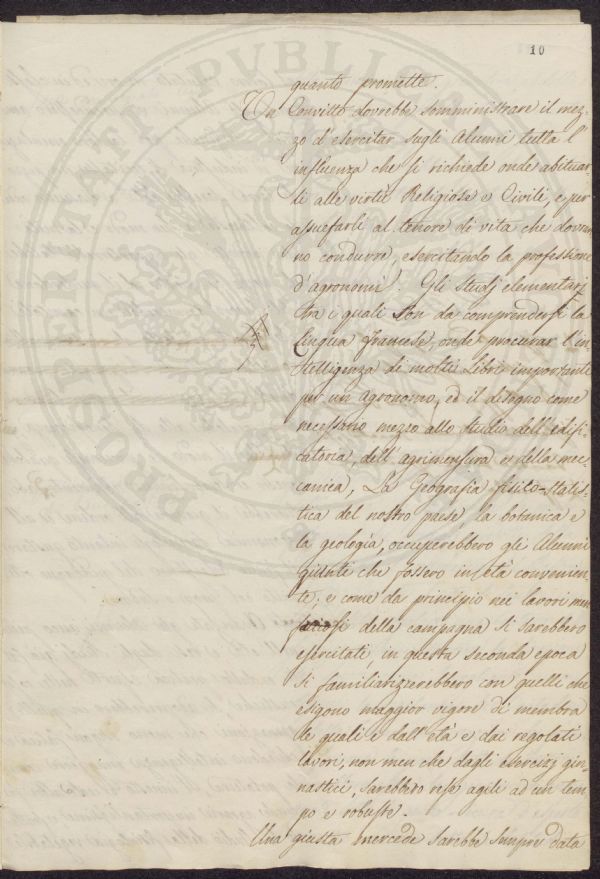 10
quanto promette.
Un Convitto dovrebbe somministrare il mez-
zo d'esercitar sugli Alunni tutta l'
influenza che si richiede onde abituar-
li alle virtù Religiose e Civili, e per
assuefarli al tenore di vita che dovran-
no condurre, esercitando la professione
d'agronomi. Gli studj elementarj
tra i quali son da comprendersi la
Lingua francese, onde procurar l'in-
telligenza di molti Libri importanti
per un Agronomo, ed il disegno come
necessario mezzo allo studio dell'edifi-
catoria, dell'agrimensura e della mec-
canica, La Geografia fisico-statis-
tica del nostro paese, la botanica e
la geologia, occuperebbero gli Alunni
giunti che fossero in età convenien-
te; e come da principio nei lavori men
faticosi della campagna si sarebbero
esercitati, in questa seconda epoca
si familiarizzerebbero con quelli che
esigono maggior vigore di membra
le quali e dall'età e dai regolati
lavori, non men che dagli esercizj gin-
nastici, sarebbero rese agili ad un tem-
po e robuste.
Una giusta mercede sarebbe sempre data
PROSPERITATI PVBLICAE